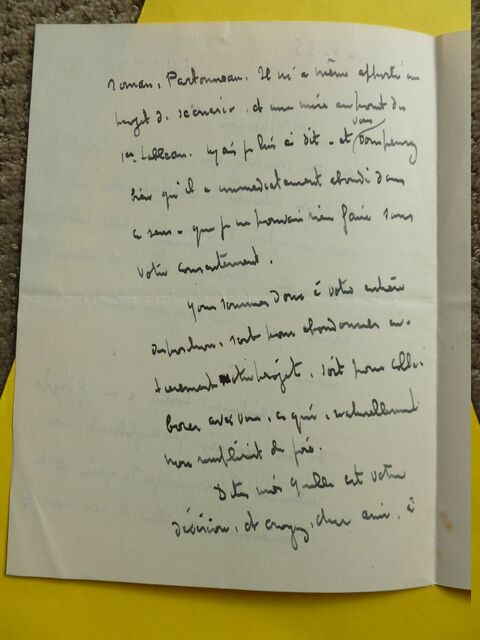 roman, Partonneau. Il m'a même apporté un
projet de scénario, et une mise au point du
1er tableau. Mais je lui ai dit - et vous pensez
bien qu'il a immédiatement abondi dans
ce sens - que je ne pouvais rien faire sans
votre consentement.
Nous sommes donc à votre entière
disposition, soit pour abandonner en-
tièrement notre projet, soit pour colla-
borer avec vous, ce qui, naturellement
nous remplirait de joie.
Dites-moi quelle est votre
décision, et croyez, cher ami, à